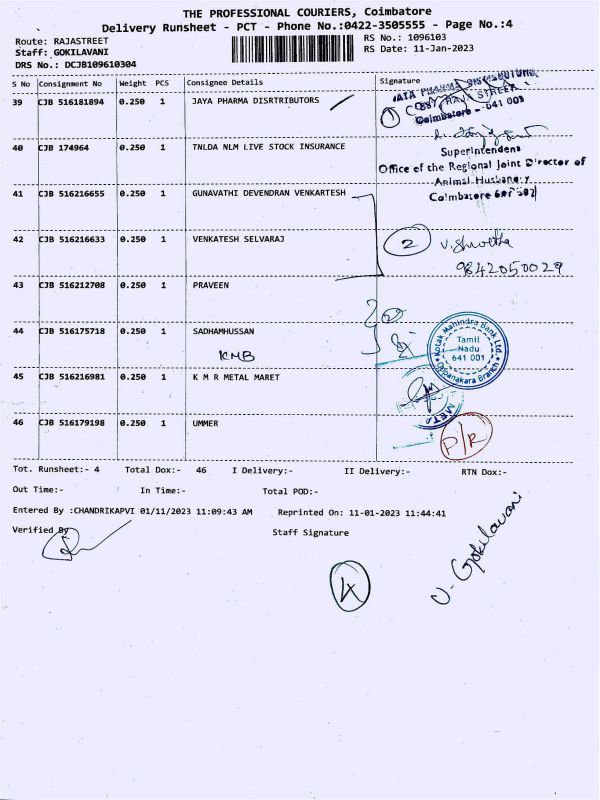 THE PROFESSIONAL COURIERS, Coimbatore
Delivery Runsheet - PCT - Phone No.:0422-3505555 - Page No.:4
Route: RAJASTREET
RS No.: 1096103
Staff: GOKILAVANI
RS Date: 11-Jan-2023
DRS No.: DCJB109610304
S No Consignment No Weight PCS Consignee Details Signature
39 CJB 516181894 0.250 1 JAYA PHARMA DISRTRIBUTORS
JAYA PHARMA DISTRIBUTORS
RAJA STREET
Coimbatore - 641 001
1
40 CJB 174964 0.250 1 TNLDA NLM LIVE STOCK INSURANCE
Superintendent
Office of the Regional Joint Director of
Animal Husbandry
Coimbatore
41 CJB 516216655 0.250 1 GUNAVATHI DEVENDRAN VENKARTESH
42 CJB 516216633 0.250 1 VENKATESH SELVARAJ
2 V. Shwetha
9842050029
43 CJB 516212708 0.250 1 PRAVEEN
44 CJB 516175718 0.250 1 SADHAMHUSSAN
KMB
Kotak Mahindra Bank Ltd.
Tamil
Nadu
641 001
Oppanakara Branch
45 CJB 516216981 0.250 1 K M R METAL MARET
META
46 CJB 516179198 0.250 1 UMMER
P/R
Tot. Runsheet:- 4 Total Dox:- 46 I Delivery:- II Delivery:- RTN Dox:-
Out Time:- In Time:- Total POD:-
Entered By :CHANDRIKAPVI 01/11/2023 11:09:43 AM Reprinted On: 11-01-2023 11:44:41
Verified By Staff Signature
4
U. Gokilavani